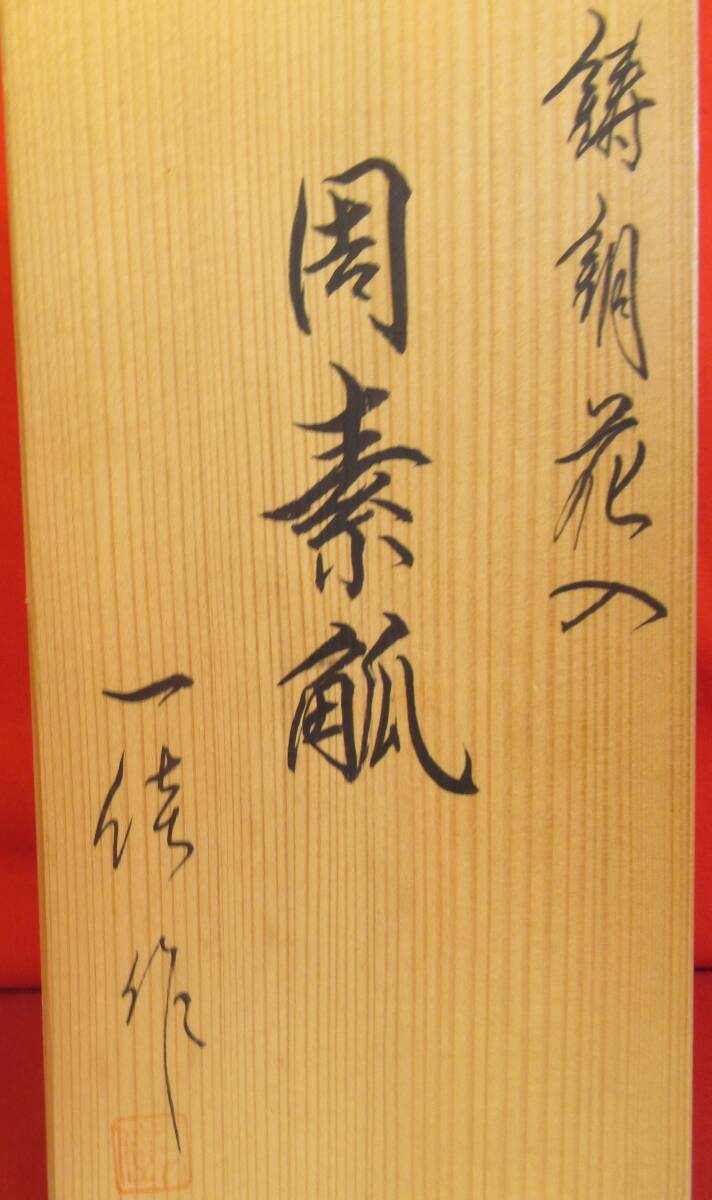 鋳銅花入
周素觚
一僖作